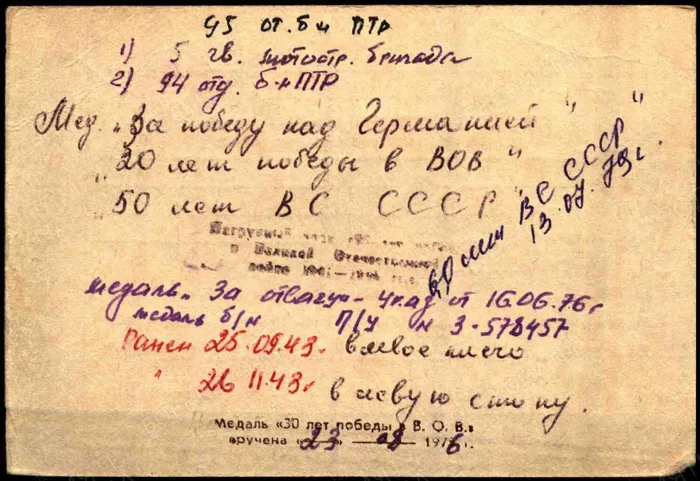 95 от. б-н ПТР
1) 5 гв. мотостр. бригада
2) 94 отд. б-н ПТР
Мед. „За победу над Германией"
„20 лет победы в ВОВ"
„50 лет ВС СССР"
60 лет ВС СССР"
13.07.79г.
Нагрудный знак «25 лет победы
в Великой Отечественной
войне 1941—1945 гг.»
медаль „За отвагу"- указ от 16.06.76г
медаль б/н П/У н 3-578457
Ранен 25.09.43г. в левое плечо
" 26 11.43г в левую стопу.
Медаль «30 лет победы в В. О. В.»
вручена «23» 08 1976 г.